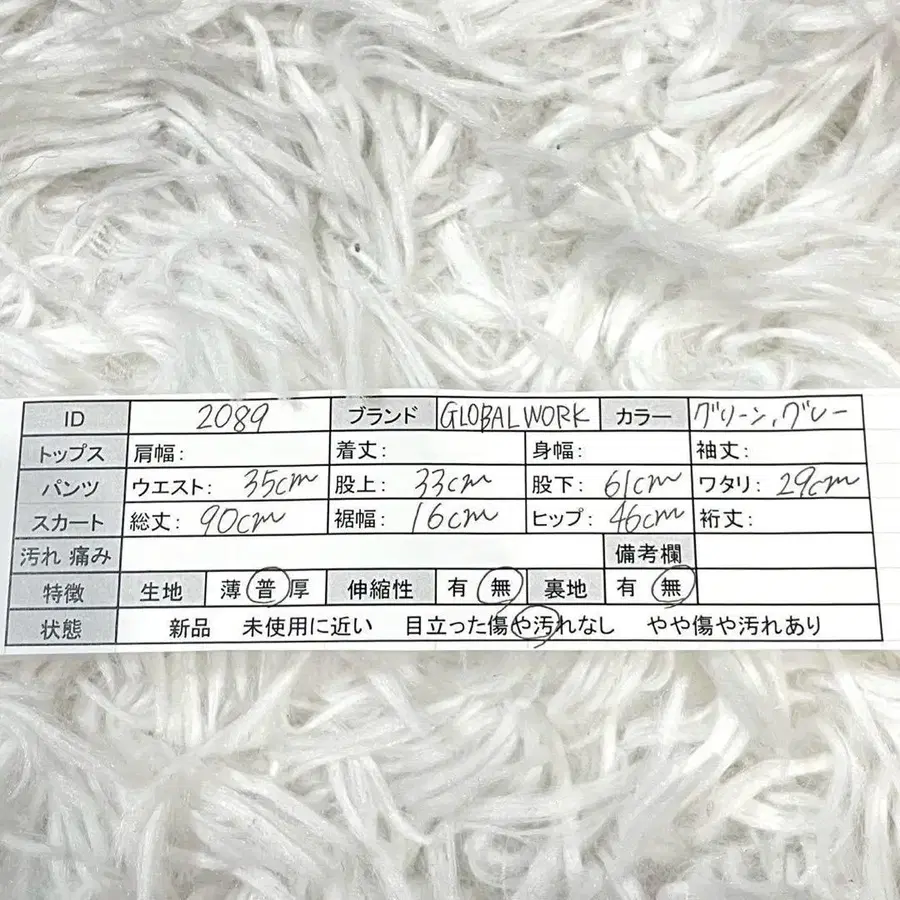 ID 2089 ブランド GLOBAL WORK カラー グリーン、グレー
トップス 肩幅: 着丈: 身幅: 袖丈:
パンツ ウエスト: 35cm 股上: 33cm 股下: 61cm ワタリ: 29cm
スカート 総丈: 90cm 裾幅: 16cm ヒップ: 46cm 裄丈:
汚れ 痛み 備考欄
特徴 生地 薄 普 厚 伸縮性 有 無 裏地 有 無
状態 新品 未使用に近い 目立った傷や汚れなし やや傷や汚れあり